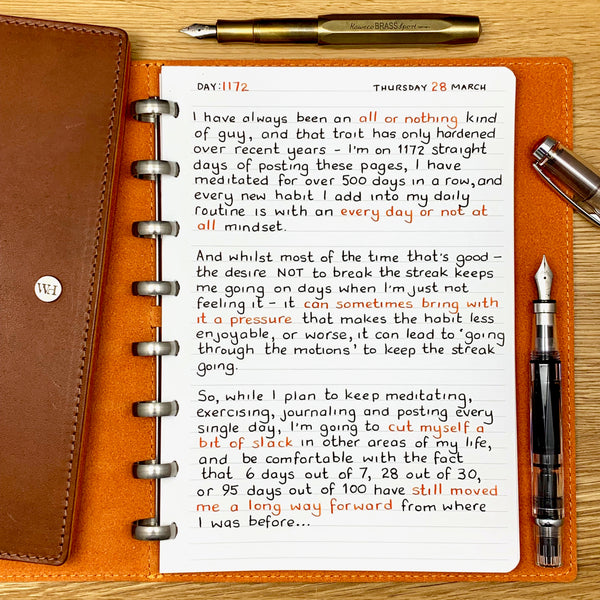 Kaweco BRASS Sport
DAY:1172 THURSDAY 28 MARCH
I have always been an all or nothing kind
of guy, and that trait has only hardened
over recent years – I'm on 1172 straight
days of posting these pages, I have
meditated for over 500 days in a row, and
every new habit I add into my daily
routine is with an every day or not at
all mindset.
And whilst most of the time that's good –
the desire NOT to break the streak keeps
me going on days when I'm just not
feeling it – it can sometimes bring with
it a pressure that makes the habit less
enjoyable, or worse, it can lead to 'going
through the motions' to keep the streak
going.
So, while I plan to keep meditating,
exercising, journaling and posting every
single day, I'm going to cut myself a
bit of slack in other areas of my life,
and be comfortable with the fact
that 6 days out of 7, 28 out of 30,
or 95 days out of 100 have still moved
me a long way forward from where
I was before...
WH